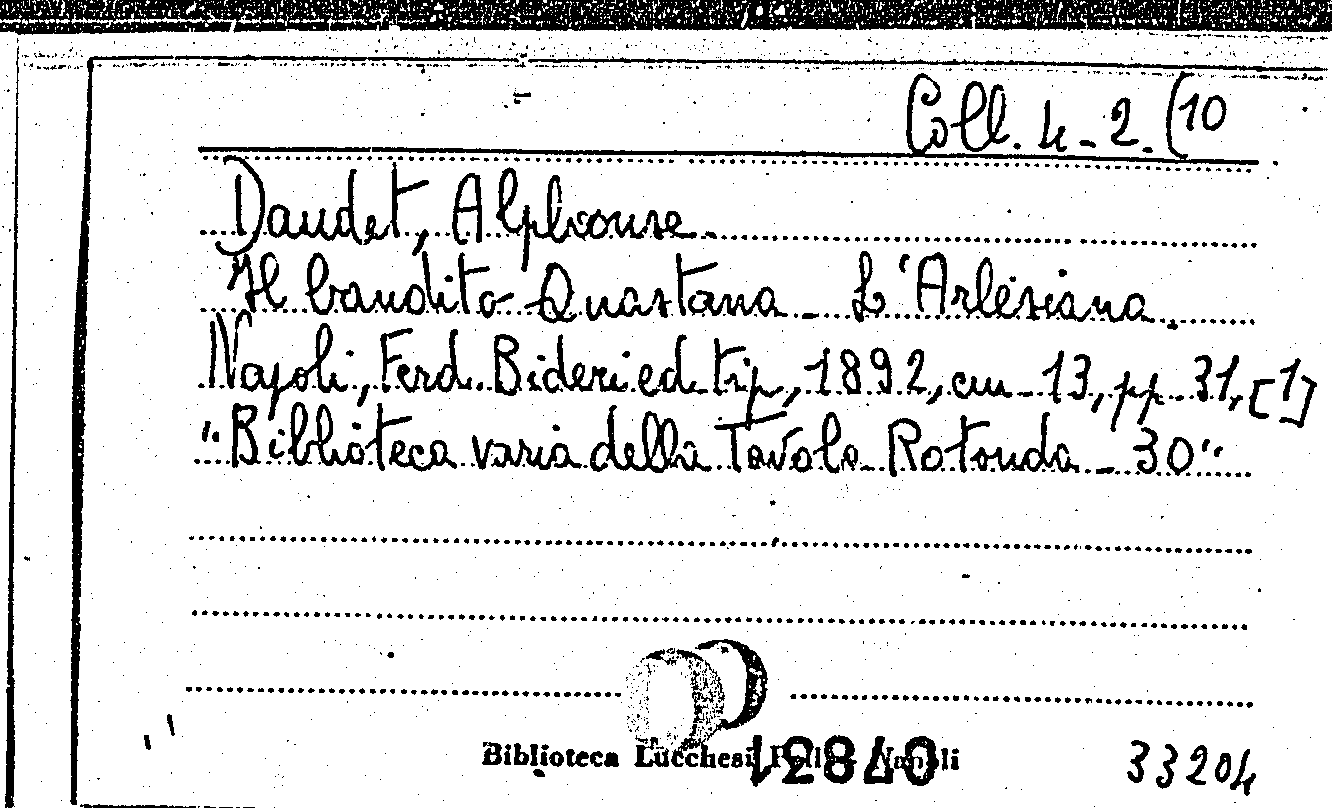 Coll. 4-2.(10
Daudet, Alphonse.
Il bandito Quastana - L'Arlesiana.
Napoli, Ferd. Bideri ed. tip., 1892, cm. 13, pp. 31, [1]
"Biblioteca varia della Tavola Rotonda - 30"
Biblioteca Lucchesi Palli - Napoli
33204